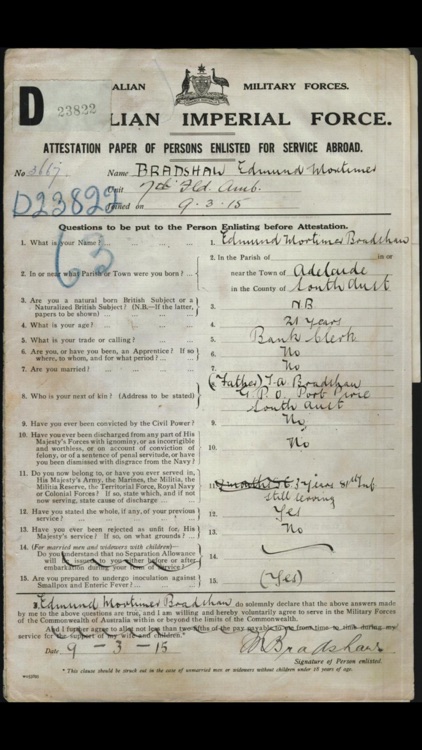 D 23822
ALIAN MILITARY FORCES.
LIAN IMPERIAL FORCE.
ATTESTATION PAPER OF PERSONS ENLISTED FOR SERVICE ABROAD.
No. Name BRADSHAW Edmund Mortimer
D23822 Unit 7th Fld. Amb.
Joined on 9.3.15
Questions to be put to the Person Enlisting before Attestation.
63
1. What is your Name? ... 1. Edmund Mortimer Bradshaw
2. In or near what Parish or Town were you born? ... 2. In the Parish of in or
near the Town of Adelaide
in the County of South Aust
3. Are you a natural born British Subject or a
Naturalized British Subject? (N.B.—If the latter,
papers to be shown) ... 3. NB
4. What is your age? ... 4. 21 years
5. What is your trade or calling? ... 5. Bank Clerk
6. Are you, or have you been, an Apprentice? If so
where, to whom, and for what period? ... 6. No
7. Are you married? ... 7. No
8. Who is your next of kin? (Address to be stated) 8. (Father) T. A. Bradshaw
G.P.O. Port Pirie
South Aust
9. Have you ever been convicted by the Civil Power? 9. No
10. Have you ever been discharged from any part of His
Majesty's Forces with ignominy, or as incorrigible
and worthless, or on account of conviction of
felony, or of a sentence of penal servitude, or have
you been dismissed with disgrace from the Navy? 10. No
11. Do you now belong to, or have you ever served in,
His Majesty's Army, the Marines, the Militia,
the Militia Reserve, the Territorial Force, Royal Navy
or Colonial Forces? If so, state which, and if not
now serving, state cause of discharge 11. 3 years Inf
still serving
12. Have you stated the whole, if any, of your previous
service? ... 12. Yes
13. Have you ever been rejected as unfit for His
Majesty's Service? If so, on what grounds? 13. No
14. (For married men and widowers with children)—
Do you understand that no Separation Allowance
will be issued to you either before or after
embarkation during your term of service? 14.
15. Are you prepared to undergo inoculation against
Smallpox and Enteric Fever? ... 15. (Yes)
I, Edmund Mortimer Bradshaw do solemnly declare that the above answers made
by me to the above questions are true, and I am willing and hereby voluntarily agree to serve in the Military Forces
of the Commonwealth of Australia within or beyond the limits of the Commonwealth.
And I further agree to allot not less than two fifths of the pay payable to me from time to time during my
service for the support of my wife and children.*
Date 9-3-15 EMBradshaw
Signature of Person enlisted.
* This clause should be struck out in the case of unmarried men or widowers without children under 18 years of age.